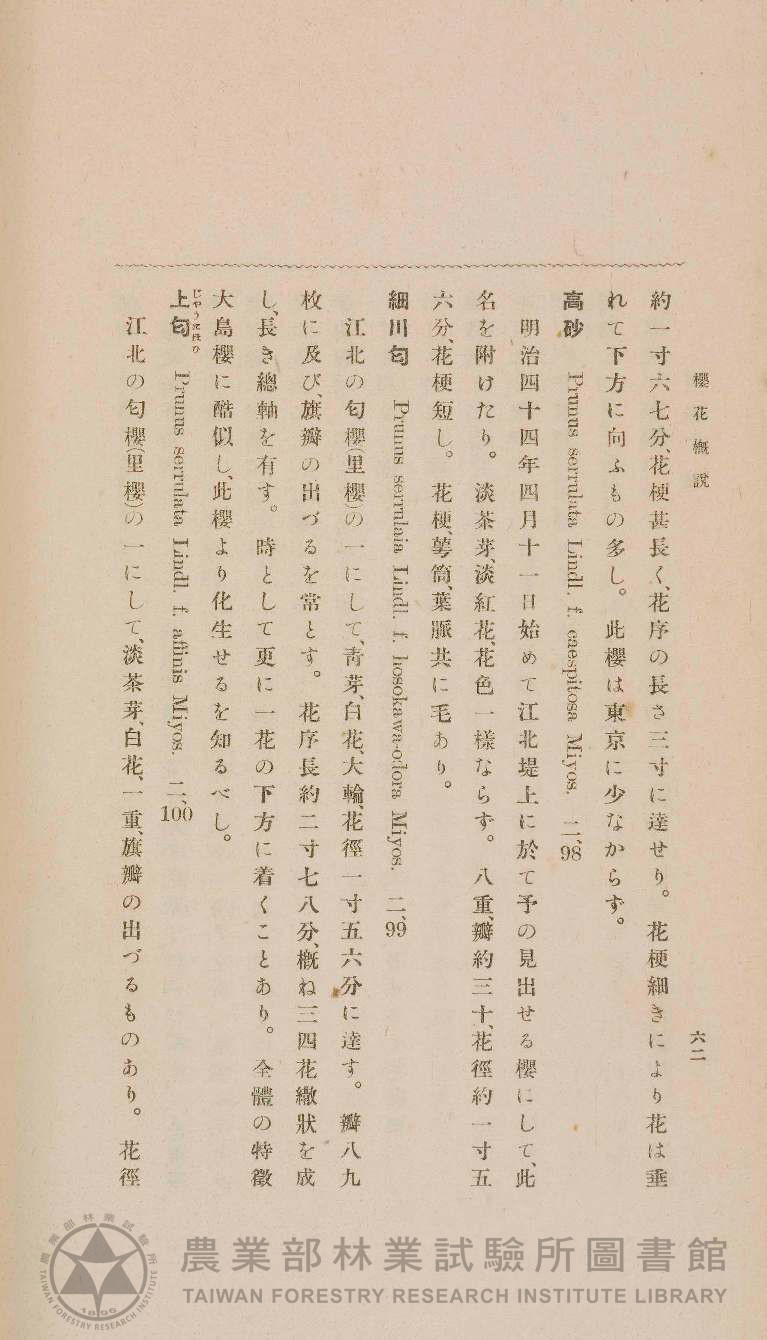 櫻花概說
六二
約一寸六七分、花梗甚長く、花序の長さ三寸に達せり。花梗細きにより花は垂
れて下方に向ふもの多し。此櫻は東京に少なからず。
高砂 Prunus serrulata Lindl. f. caespitosa Miyos. 二、98
明治四十四年四月十一日始めて江北堤上に於て予の見出せる櫻にして、此
名を附けたり。淡茶芽、淡紅花、花色一樣ならず。八重、瓣約三十、花徑約一寸五
六分、花梗短し。花梗、萼筒、葉脈共に毛あり。
細川匂 Prunus serrulaia Lindl. f. hosokawa-odora Miyos. 二、99
江北の匂櫻(里櫻)の一にして、靑芽、白花、大輪、花徑一寸五六分に達す。瓣八九
枚に及び、旗瓣の出づるを常とす。花序長約二寸七八分、槪ね三四花繖狀を成
し、長き總軸を有す。時として更に一花の下方に着くことあり。全體の特徵
大島櫻に酷似し、此櫻より化生せるを知るべし。
上匂 じやうにほひ Prunus serrulata Lindl. f. affinis Miyos. 二、100
江北の匂櫻(里櫻)の一にして、淡茶芽、白花、一重、旗瓣の出づるものあり。花徑
農業部林業試驗所圖書館
TAIWAN FORESTRY RESEARCH INSTITUTE LIBRARY
農業部林業試驗所
TAIWAN FORESTRY RESEARCH INSTITUTE
1896